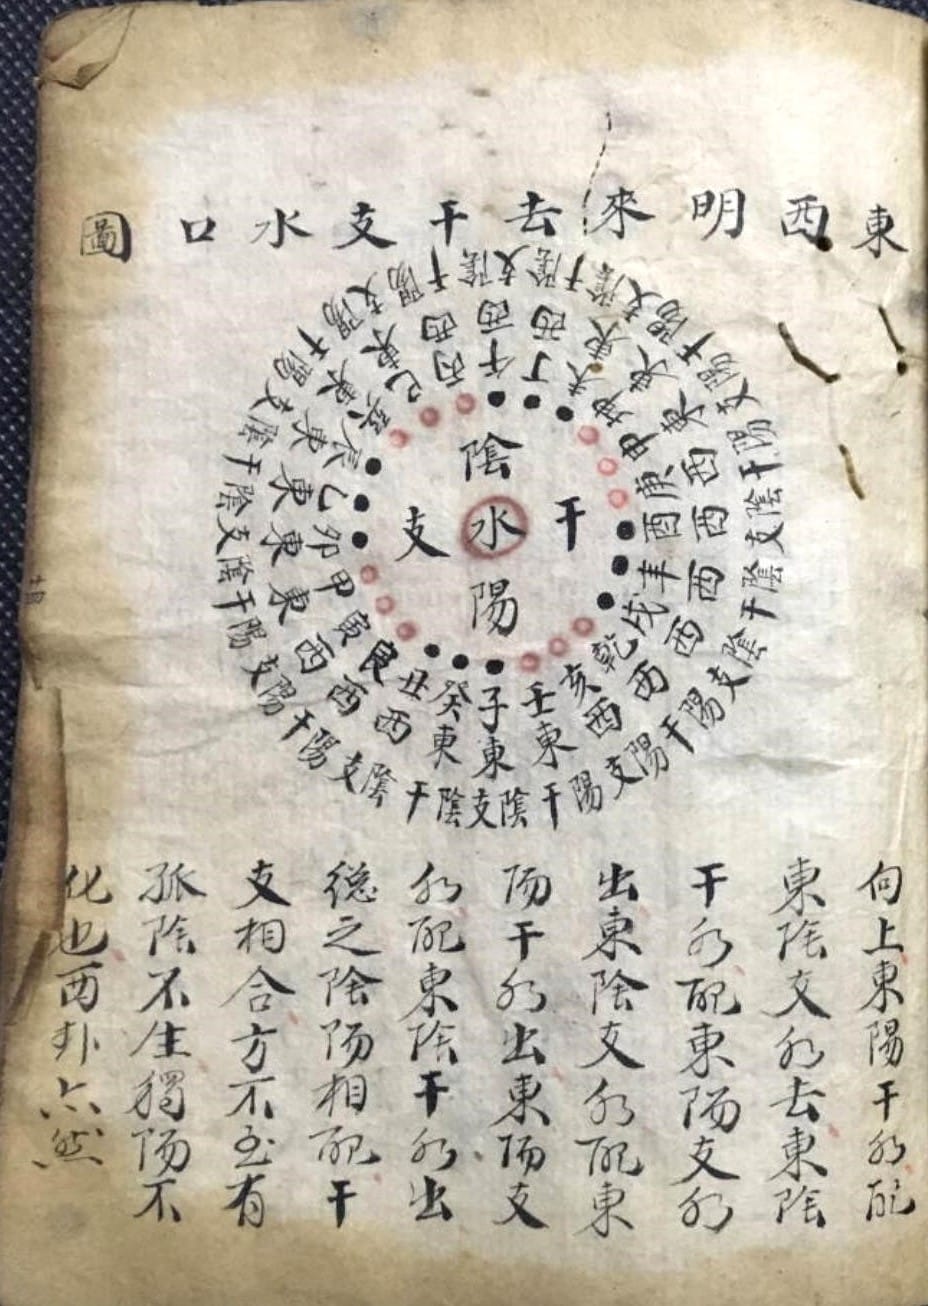 東西明來去干支水口圖
陰支陰干陰支陽干陽支陽干陰支陰干陰支陽干陽支陽干陰支陰干陰支陽干陽支陽干陰支陰干陰支陽干陽支陽干
西西東東東西西西西西西東東東西西西東東東東東東西
午丁未坤申庚酉辛戌乾亥壬子癸丑艮寅甲卯乙辰巽巳丙
陰
干水支
陽
向上東陽干水配
東陰支水去東陰
干水配東陽支水
出東陰支水配東
陽干水出東陽支
水配東陰干水出
總之陰陽相配干
支相合方不至有
孤陰不生獨陽不
化也西卦亦然